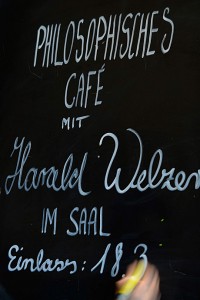 PHILOSOPHISCHES
CAFÉ
MIT
Harald Welzer
IM SAAL
Einlass: 18.3